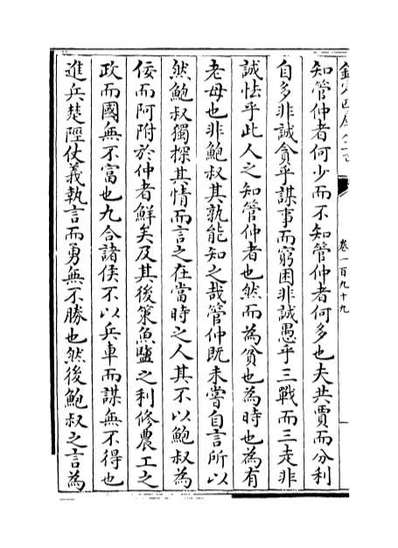 卷一百九十九
知管仲者何少而不知管仲者何多也夫共賈而分利
自多非誠貪乎謀事而窮困非誠愚乎三戰而三走非
誠怯乎此人之知管仲者也然而為貧也為時也為有
老母也非鮑叔其孰能知之哉管仲既未嘗自言所以
然鮑叔獨探其情而言之在當時之人其不以鮑叔為
佞而阿附於仲者鮮矣及其後策魚鹽之利修農工之
政而國無不富也九合諸侯不以兵車而謀無不得也
進兵楚陘仗義執言而勇無不勝也然後鮑叔之言為